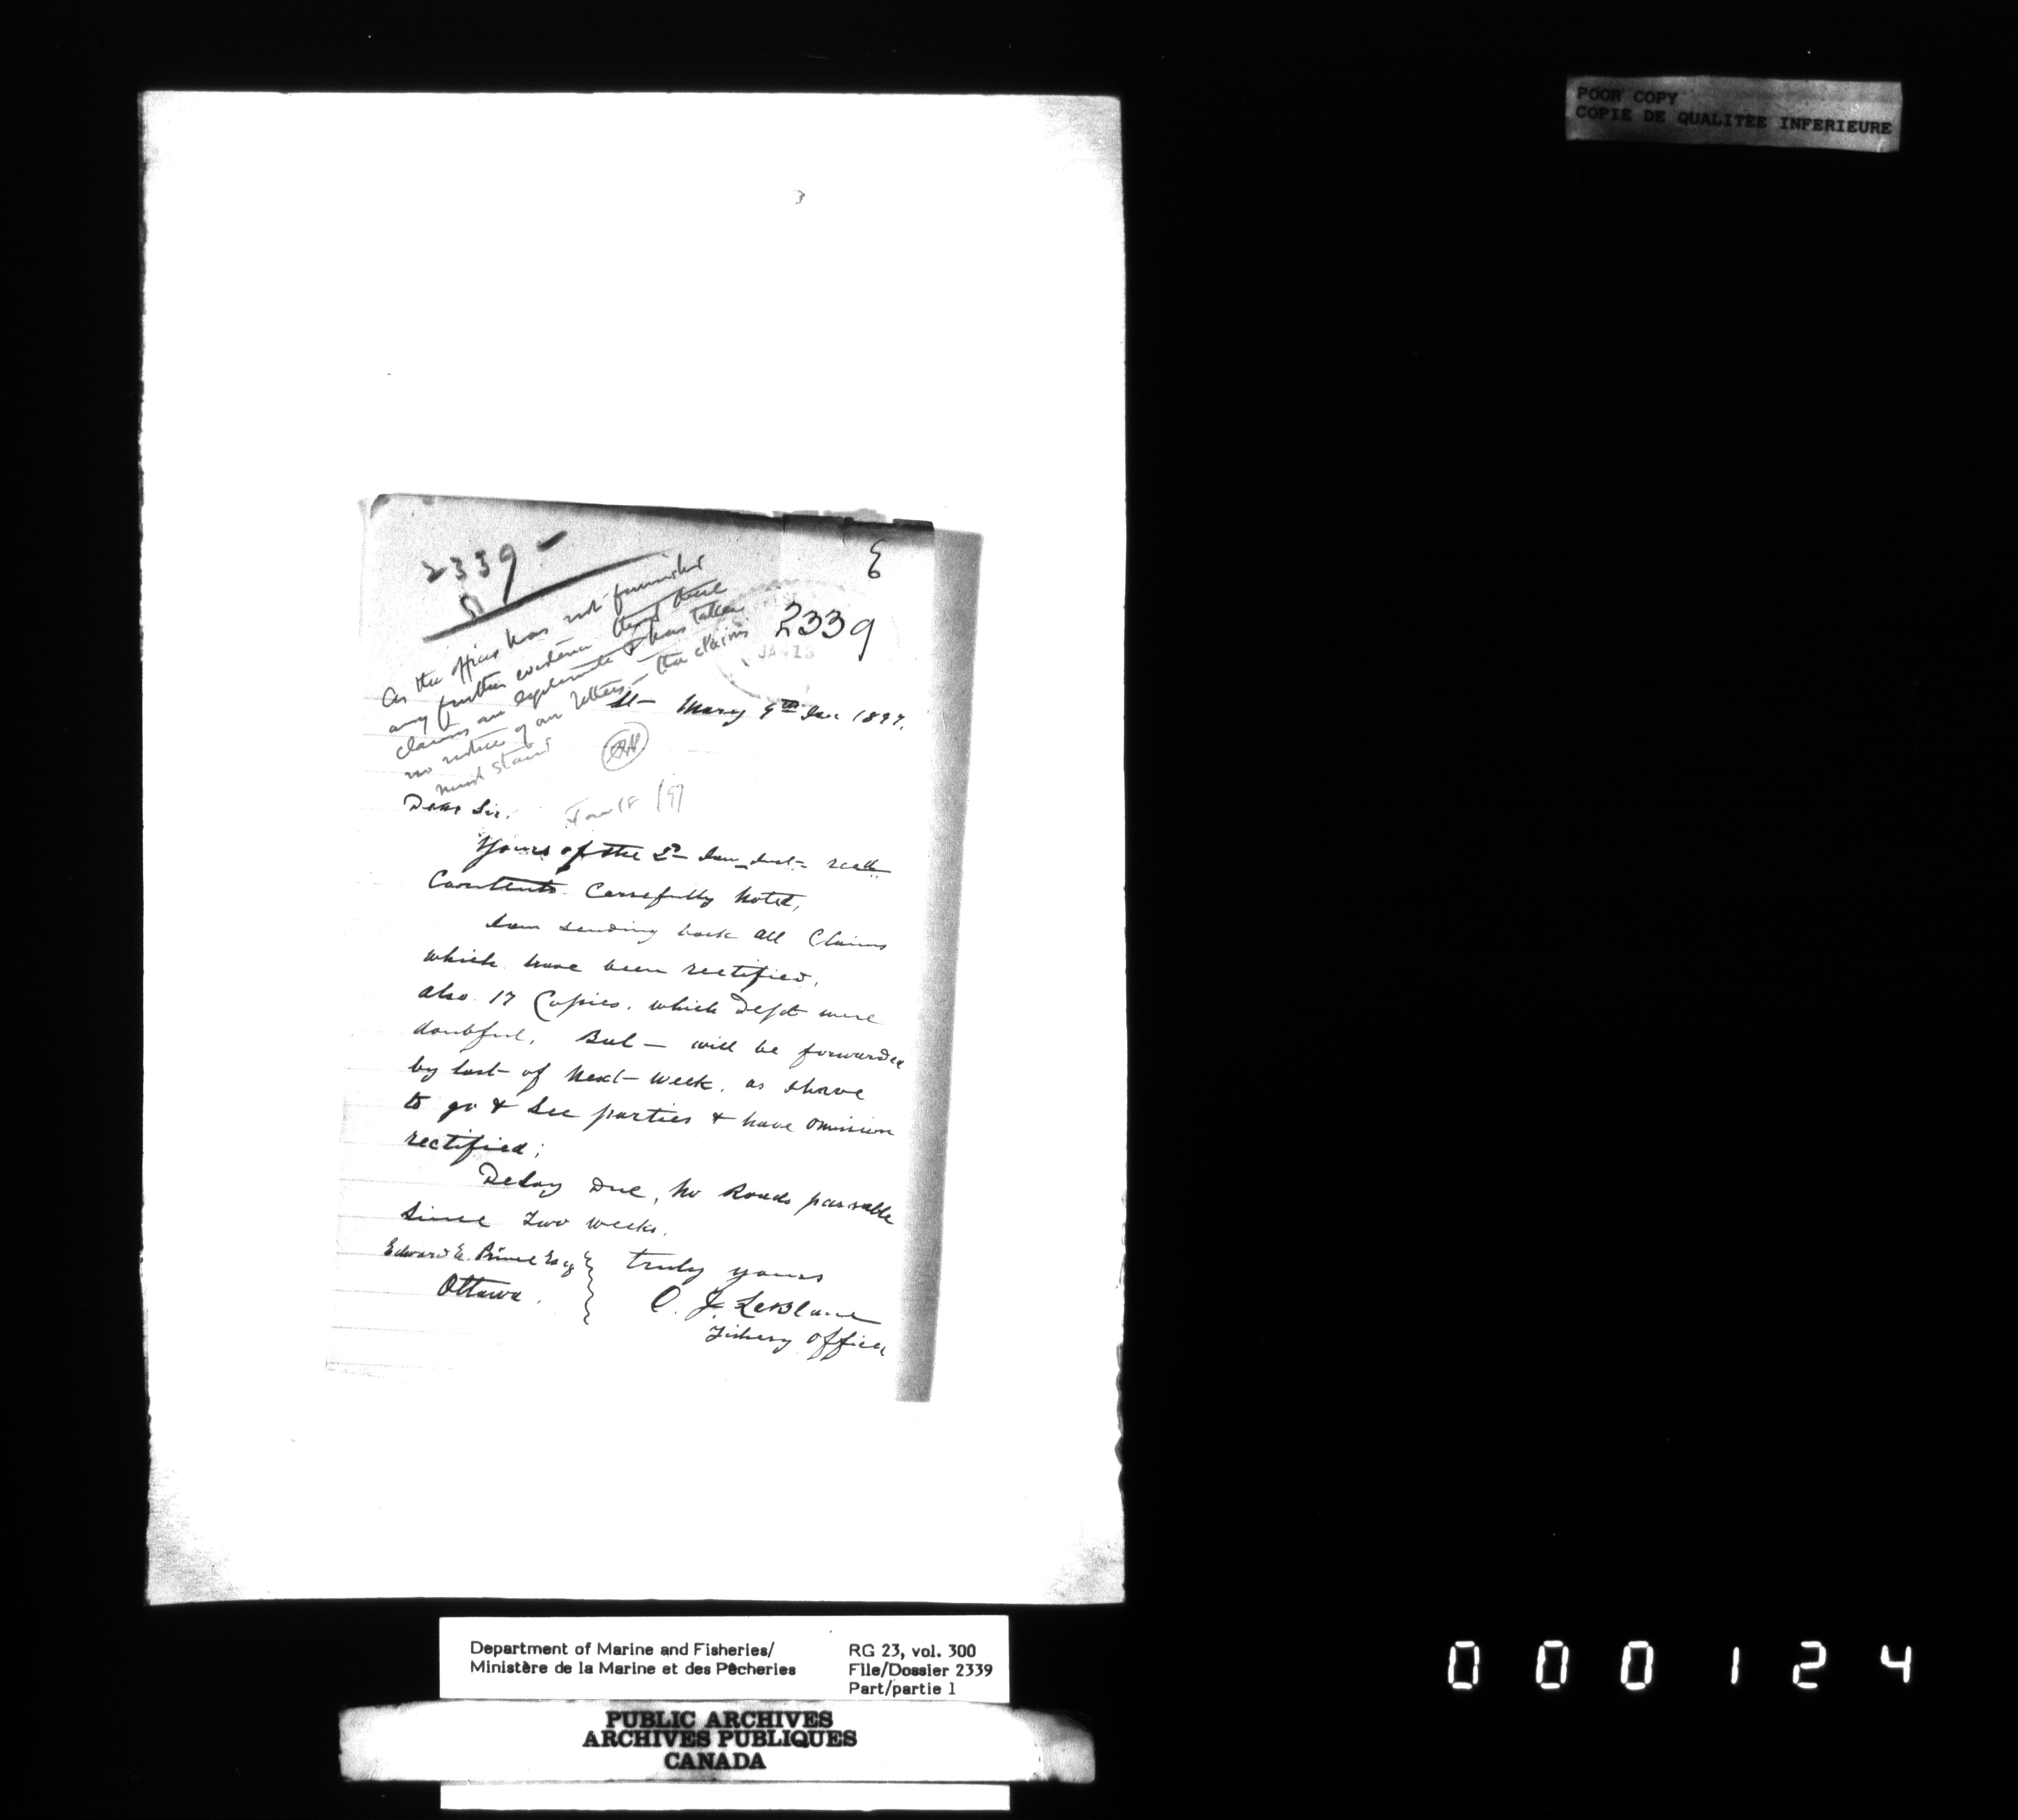 POOR COPY
COPIE DE QUALITEE INFERIEURE
3
2339 -
E
2339
JAN 13
As the officer has not furnished
any further evidence that these
claims are legitimate & has taken
no notice of our letters - the claims
must stand
St- Mary 9th Jan 1897.
Dear Sir,
Yours of the 2d Jan Inst-
Contents Carrefully Noted,
I am sending back all Claims
which have been rectified,
also 17 Copies, which Dept were
doubtful, But- will be forwarded
by last- of Next- week, as I have
to go & See parties & have omission
rectified;
Delay Due, No Roads passable
Since Two weeks.
Edward E. Prince Esq
Ottawa.
Truly yours
O. J. LeBlanc
Fishery Officer
Department of Marine and Fisheries/
Ministère de la Marine et des Pêcheries
RG 23, vol. 300
File/Dossier 2339
Part/partie 1
PUBLIC ARCHIVES
ARCHIVES PUBLIQUES
CANADA
000124